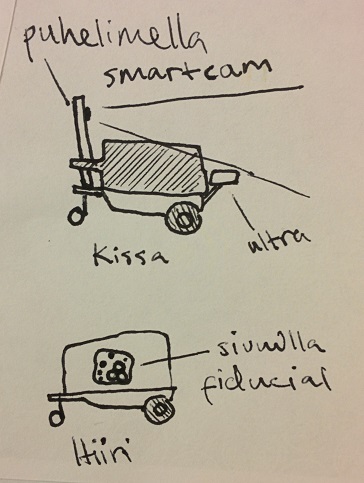 puhelimella
smartcam
Kissa
ultra
sivuilla
fiducial
Hiiri